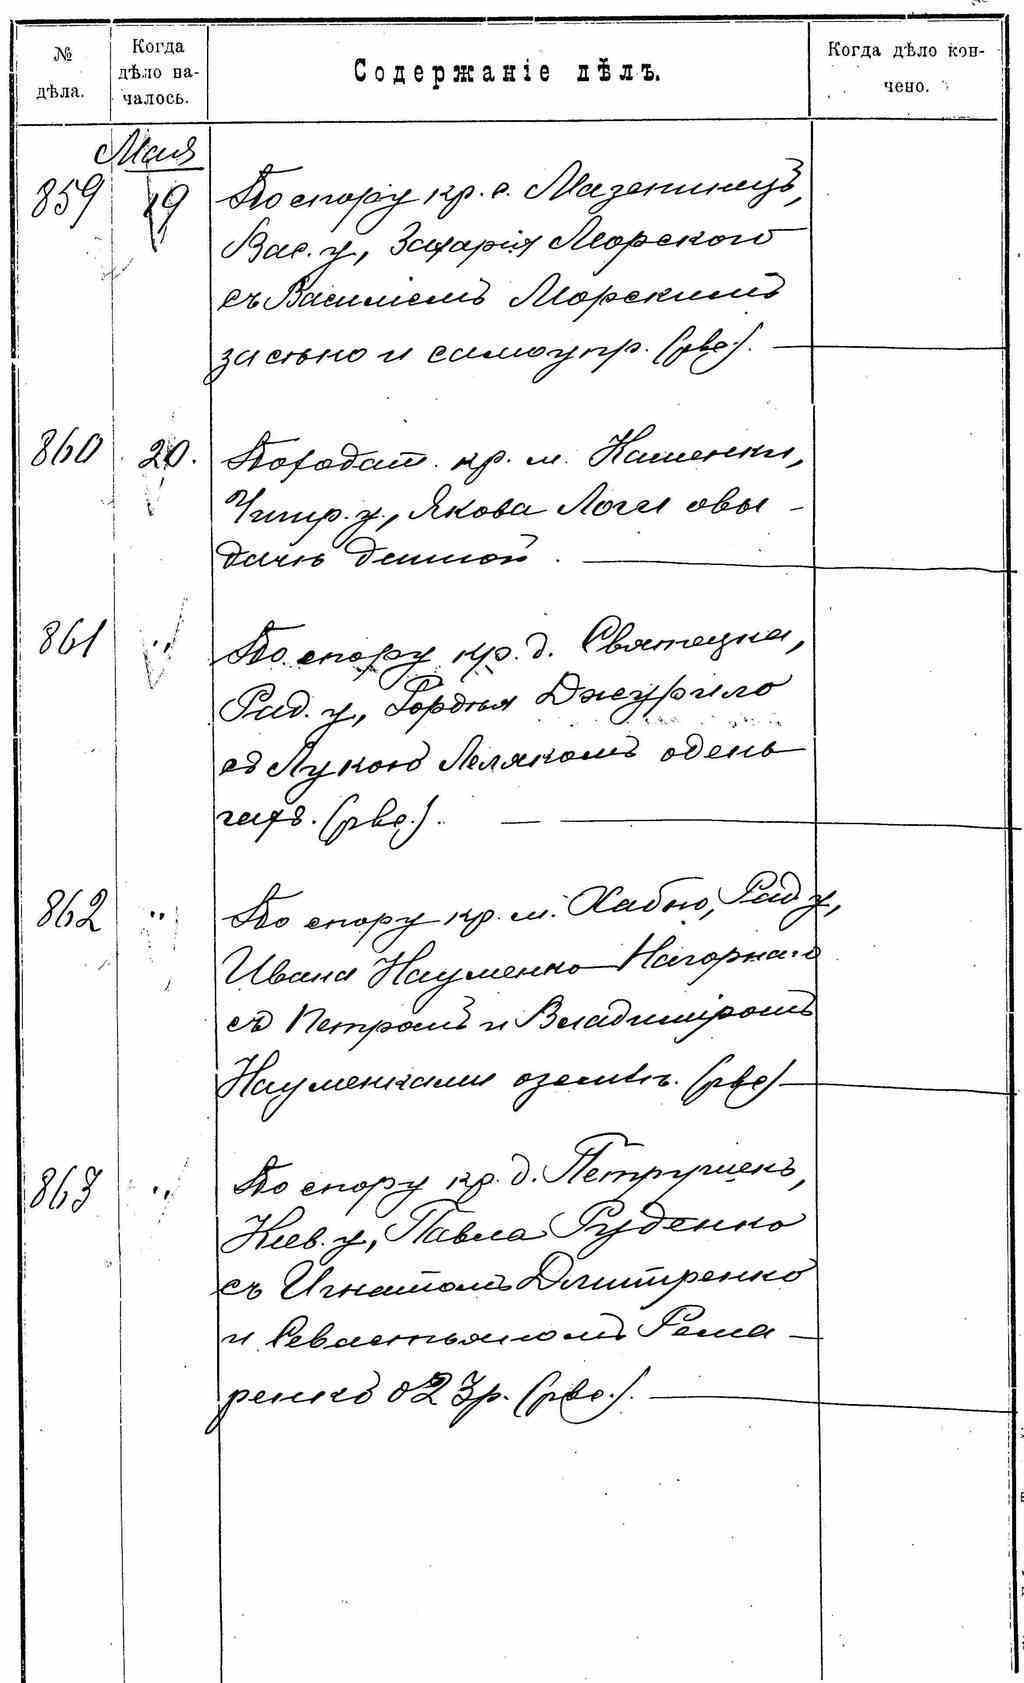 № дѣла.
Когда дѣло на-
чалось.
Содержаніе дѣлъ.
Когда дѣло кон-
чено.
Мая
859 19 По спору кр. с. Мазепинецъ,
Вас. у, Захарія Морского
съ Василіемъ Морскимъ
за сѣно и самоупр. (рвс.).
860 20. По ходат. кр. м. Каменки,
Чигир. у., Якова Логи овы-
дачѣ данной.
861 " По спору кр. д. Святецка,
Рад. у, Гордѣя Джурило
съ Лукою Леляком ъ о день
гахъ. (рвс.).
862 " По спору кр. м. Хабно, Рад у,
Ивана Науменко Нагорнаго
съ Петромъ и Владиміромъ
Науменками о землѣ. (рвс)
863 " По спору кр. д. Петрушекъ,
Кіев. у, Павла Руденко
съ Игнатомъ Дмитренко
и Севастьяномъ Рема-
ренко о 23р. (рвс.).